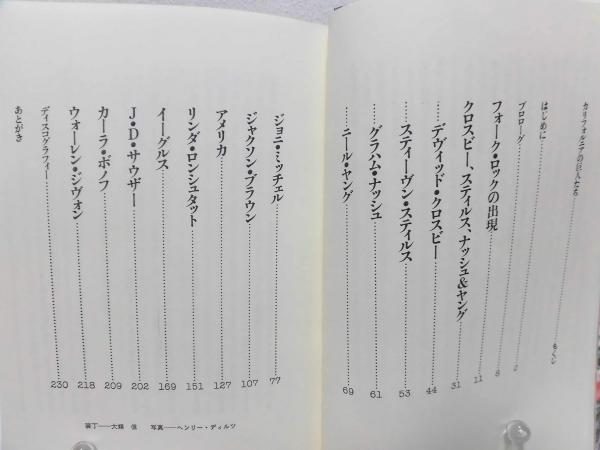 カリフォルニアの巨人たち もくじ
はじめに……2
プロローグ……8
フォーク・ロックの出現……11
クロスビー、スティルス、ナッシュ&ヤング……31
デヴィッド・クロスビー……44
スティーヴン・スティルス……53
グラハム・ナッシュ……61
ニール・ヤング……69
ジョニ・ミッチェル……77
ジャクソン・ブラウン……107
アメリカ……127
リンダ・ロンシュタット……151
イーグルス……169
J・D・サウザー……202
カーラ・ボノフ……209
ウォーレン・ジヴォン……218
ディスコグラフィー……230
あとがき
装丁——大類 信 写真——ヘンリー・ディルツ